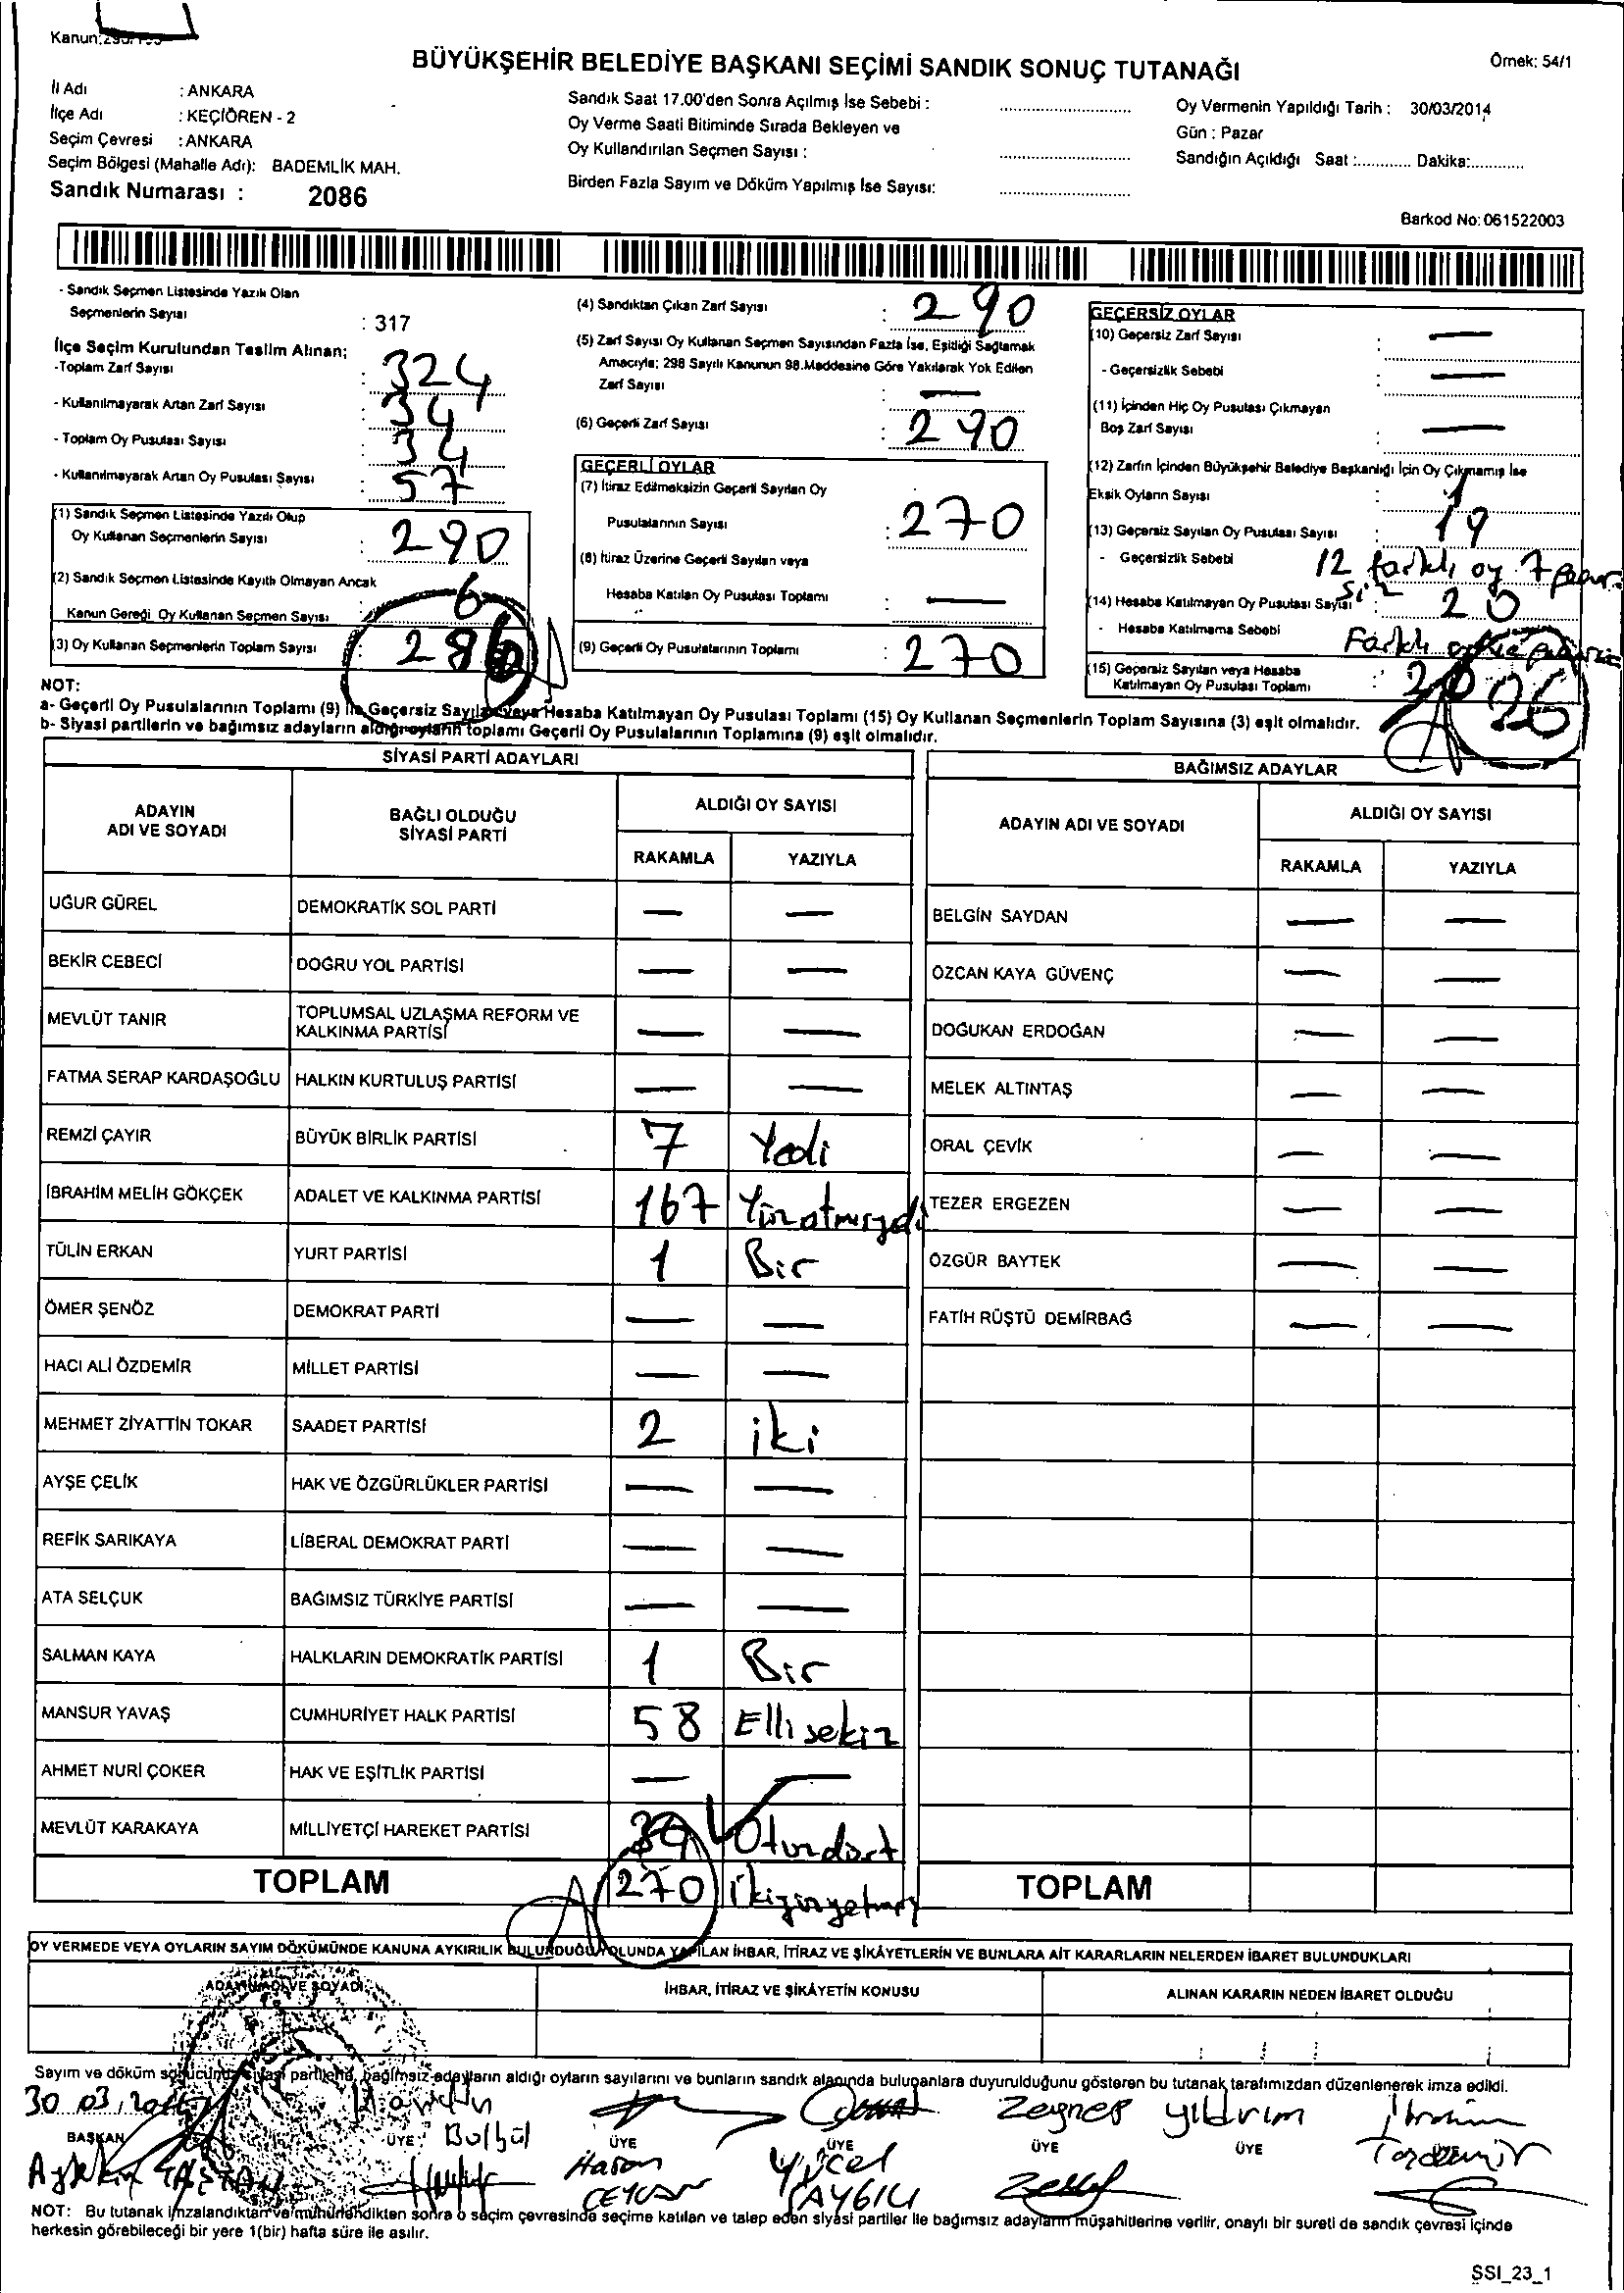 Kanun:298/195
BÜYÜKŞEHİR BELEDİYE BAŞKANI SEÇİMİ SANDIK SONUÇ TUTANAĞI
Örnek: 54/1
İl Adı : ANKARA
İlçe Adı : KEÇİÖREN - 2
Seçim Çevresi : ANKARA
Seçim Bölgesi (Mahalle Adı): BADEMLİK MAH.
Sandık Numarası : 2086
Sandık Saat 17.00'den Sonra Açılmış İse Sebebi :
Oy Verme Saati Bitiminde Sırada Bekleyen ve
Oy Kullandırılan Seçmen Sayısı :
Birden Fazla Sayım ve Döküm Yapılmış İse Sayısı:
Oy Vermenin Yapıldığı Tarih : 30/03/2014
Gün : Pazar
Sandığın Açıldığı Saat :............ Dakika:............
Barkod No: 061522003
- Sandık Seçmen Listesinde Yazılı Olan
Seçmenlerin Sayısı : 317
İlçe Seçim Kurulundan Teslim Alınan;
-Toplam Zarf Sayısı : 324
- Kullanılmayarak Artan Zarf Sayısı : 34
- Toplam Oy Pusulası Sayısı : 34
- Kullanılmayarak Artan Oy Pusulası Sayısı : 57
(1) Sandık Seçmen Listesinde Yazılı Olup
Oy Kullanan Seçmenlerin Sayısı : 290
(2) Sandık Seçmen Listesinde Kayıtlı Olmayan Ancak
Kanun Gereği Oy Kullanan Seçmen Sayısı : 6
(3) Oy Kullanan Seçmenlerin Toplam Sayısı : 286
(4) Sandıktan Çıkan Zarf Sayısı : 290
(5) Zarf Sayısı Oy Kullanan Seçmen Sayısından Fazla İse, Eşitliği Sağlamak
Amacıyla; 298 Sayılı Kanunun 98.Maddesine Göre Yakılarak Yok Edilen
Zarf Sayısı : —
(6) Geçerli Zarf Sayısı : 290
GEÇERLİ OYLAR
(7) İtiraz Edilmeksizin Geçerli Sayılan Oy
Pusulalarının Sayısı : 270
(8) İtiraz Üzerine Geçerli Sayılan veya
Hesaba Katılan Oy Pusulası Toplamı : —
(9) Geçerli Oy Pusulalarının Toplamı : 270
GEÇERSİZ OYLAR
(10) Geçersiz Zarf Sayısı : —
- Geçersizlik Sebebi : —
(11) İçinden Hiç Oy Pusulası Çıkmayan
Boş Zarf Sayısı : —
(12) Zarfın İçinden Büyükşehir Belediye Başkanlığı İçin Oy Çıkmamış İse
Eksik Oyların Sayısı : 1
(13) Geçersiz Sayılan Oy Pusulası Sayısı : 19
- Geçersizlik Sebebi 12 farklı oy 7
(14) Hesaba Katılmayan Oy Pusulası Sayısı : 20
- Hesaba Katılmama Sebebi Farklı
(15) Geçersiz Sayılan veya Hesaba
Katılmayan Oy Pusulası Toplamı : 20 26
NOT:
a- Geçerli Oy Pusulalarının Toplamı (9) ile Geçersiz Sayılan veya Hesaba Katılmayan Oy Pusulası Toplamı (15) Oy Kullanan Seçmenlerin Toplam Sayısına (3) eşit olmalıdır.
b- Siyasi partilerin ve bağımsız adayların aldığı oyların toplamı Geçerli Oy Pusulalarının Toplamına (9) eşit olmalıdır.
SİYASİ PARTİ ADAYLARI
ADAYIN ADI VE SOYADI BAĞLI OLDUĞU SİYASİ PARTİ ALDIĞI OY SAYISI
RAKAMLA YAZIYLA
UĞUR GÜREL DEMOKRATİK SOL PARTİ — —
BEKİR CEBECİ DOĞRU YOL PARTİSİ — —
MEVLÜT TANIR TOPLUMSAL UZLAŞMA REFORM VE KALKINMA PARTİSİ — —
FATMA SERAP KARDAŞOĞLU HALKIN KURTULUŞ PARTİSİ — —
REMZİ ÇAYIR BÜYÜK BİRLİK PARTİSİ 7 Yedi
İBRAHİM MELİH GÖKÇEK ADALET VE KALKINMA PARTİSİ 167 Yüzatmışyedi
TÜLİN ERKAN YURT PARTİSİ 1 Bir
ÖMER ŞENÖZ DEMOKRAT PARTİ — —
HACI ALİ ÖZDEMİR MİLLET PARTİSİ — —
MEHMET ZİYATTİN TOKAR SAADET PARTİSİ 2 iki
AYŞE ÇELİK HAK VE ÖZGÜRLÜKLER PARTİSİ — —
REFİK SARIKAYA LİBERAL DEMOKRAT PARTİ — —
ATA SELÇUK BAĞIMSIZ TÜRKİYE PARTİSİ — —
SALMAN KAYA HALKLARIN DEMOKRATİK PARTİSİ 1 Bir
MANSUR YAVAŞ CUMHURİYET HALK PARTİSİ 58 Elli sekiz
AHMET NURİ ÇOKER HAK VE EŞİTLİK PARTİSİ — —
MEVLÜT KARAKAYA MİLLİYETÇİ HAREKET PARTİSİ 34 Otuzdört
TOPLAM 270 ikiyüzyetmiş
BAĞIMSIZ ADAYLAR
ADAYIN ADI VE SOYADI ALDIĞI OY SAYISI
RAKAMLA YAZIYLA
BELGİN SAYDAN — —
ÖZCAN KAYA GÜVENÇ — —
DOĞUKAN ERDOĞAN — —
MELEK ALTINTAŞ — —
ORAL ÇEVİK — —
TEZER ERGEZEN — —
ÖZGÜR BAYTEK — —
FATİH RÜŞTÜ DEMİRBAĞ — —
TOPLAM
OY VERMEDE VEYA OYLARIN SAYIM DÖKÜMÜNDE KANUNA AYKIRILIK BULUNDUĞU YOLUNDA YAPILAN İHBAR, İTİRAZ VE ŞİKÂYETLERİN VE BUNLARA AİT KARARLARIN NELERDEN İBARET BULUNDUKLARI
ADAYIN ADI VE SOYADI İHBAR, İTİRAZ VE ŞİKÂYETİN KONUSU ALINAN KARARIN NEDEN İBARET OLDUĞU
Sayım ve döküm sonucunu, siyasi partilerin, bağımsız adayların aldığı oyların sayılarını ve bunların sandık alanında bulunanlara duyurulduğunu gösteren bu tutanak tarafımızdan düzenlenerek imza edildi.
30 03, 2014
Zeynep Yıldırım İbrahim
BAŞKAN ÜYE Bülbül ÜYE ÜYE ÜYE ÜYE
Hasan Yücel Tozdemir
CEYLAN SAYGILI
NOT: Bu tutanak imzalandıktan ve mühürlendikten sonra o seçim çevresinde seçime katılan ve talep eden siyasi partiler ile bağımsız adayların müşahitlerine verilir, onaylı bir sureti de sandık çevresi içinde
herkesin görebileceği bir yere 1(bir) hafta süre ile asılır.
SSI_23_1